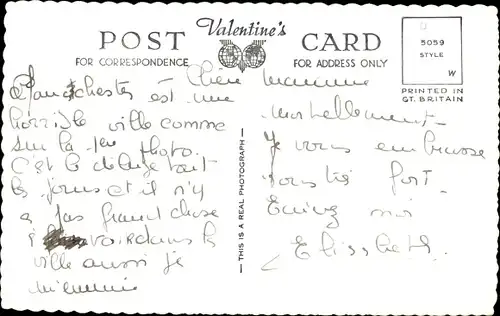 Valentine's
POST CARD
FOR CORRESPONDENCE
FOR ADDRESS ONLY
5059
STYLE
W
PRINTED IN
GT. BRITAIN
— THIS IS A REAL PHOTOGRAPH —
Chère Mamine
Manchester est une
horrible ville comme
sur la 1ère photo.
C'est le déluge tout
les jours et il n'y
a pas grand chose
à voir dans la
ville aussi je
m'ennuie
mortellement.
Je vous embrasse
tous très fort.
Ecrivez moi
Elisabeth.